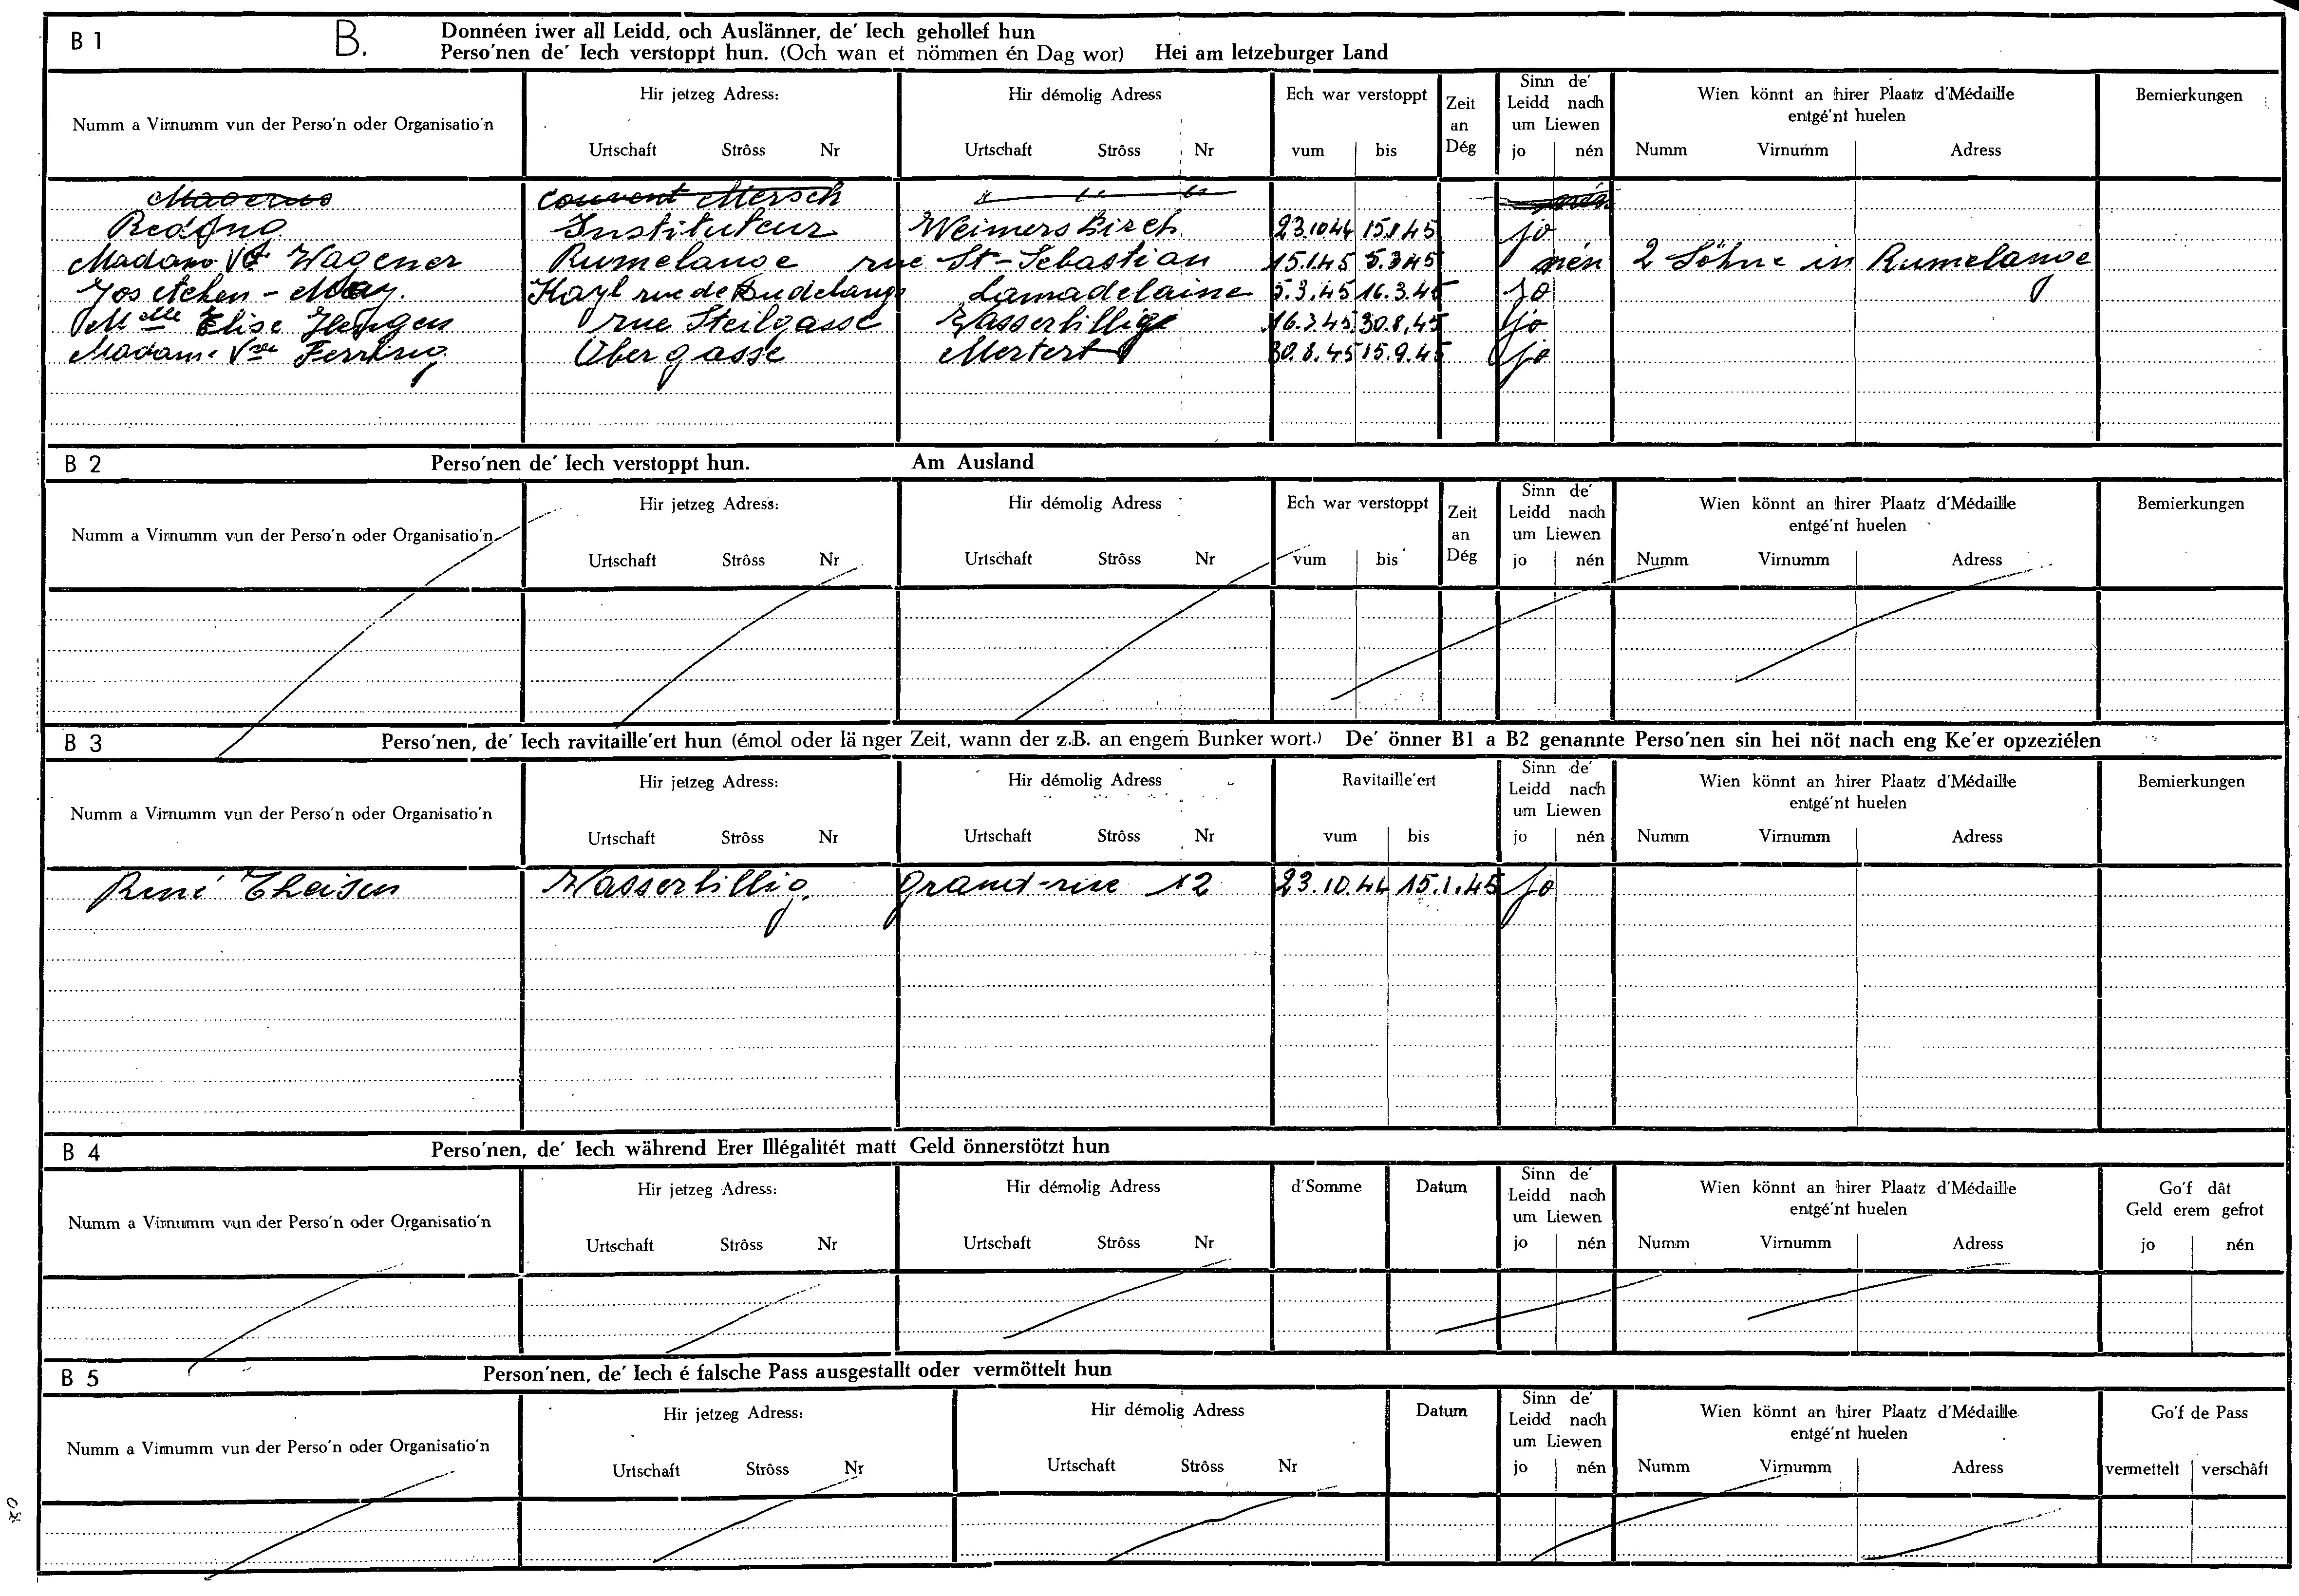 B 1 B. Donnéen iwer all Leidd, och Auslänner, de' Iech gehollef hun
Perso'nen de' Iech verstoppt hun. (Och wan et nömmen én Dag wor) Hei am letzeburger Land
Numm a Virnumm vun der Perso'n oder Organisatio'n
Hir jetzeg Adress:
Urtschaft Strôss Nr
Hir démolig Adress
Urtschaft Strôss Nr
Ech war verstoppt
vum bis
Zeit
an
Dég
Sinn de'
Leidd nach
um Liewen
jo nén
Wien könnt an hirer Plaatz d'Médaille
entgé'nt huelen
Numm Virnumm Adress
Bemierkungen
couvent Mersch nén
Instituteur Weimerskirch 23.10.44 15.1.45 jo
Madame Vve Wagener Rumelange rue St-Sebastian 15.1.45 5.3.45 nén 2 Söhne in Rumelange
Jos Kayl rue de Dudelange Lamadelaine 5.3.45 16.3.45 jo
Melle Elise Hengen rue Steilgasse Wasserbillig 16.3.45 30.8.45 jo
Madame Vve Ferring Übergasse Mertert 30.8.45 15.9.45 jo
B 2 Perso'nen de' Iech verstoppt hun. Am Ausland
Numm a Virnumm vun der Perso'n oder Organisatio'n
Hir jetzeg Adress:
Urtschaft Strôss Nr
Hir démolig Adress
Urtschaft Strôss Nr
Ech war verstoppt
vum bis
Zeit
an
Dég
Sinn de'
Leidd nach
um Liewen
jo nén
Wien könnt an hirer Plaatz d'Médaille
entgé'nt huelen
Numm Virnumm Adress
Bemierkungen
B 3 Perso'nen, de' Iech ravitaille'ert hun (émol oder länger Zeit, wann der z.B. an engem Bunker wort.) De' önner B1 a B2 genannte Perso'nen sin hei nöt nach eng Ke'er opzeziélen
Numm a Virnumm vun der Perso'n oder Organisatio'n
Hir jetzeg Adress:
Urtschaft Strôss Nr
Hir démolig Adress
Urtschaft Strôss Nr
Ravitaille'ert
vum bis
Sinn de'
Leidd nach
um Liewen
jo nén
Wien könnt an hirer Plaatz d'Médaille
entgé'nt huelen
Numm Virnumm Adress
Bemierkungen
René Theisen Wasserbillig Grand-rue 12 23.10.44 15.1.45 jo
B 4 Perso'nen, de' Iech während Erer Illégalitét matt Geld önnerstötzt hun
Numm a Virnumm vun der Perso'n oder Organisatio'n
Hir jetzeg Adress:
Urtschaft Strôss Nr
Hir démolig Adress
Urtschaft Strôss Nr
d'Somme
Datum
Sinn de'
Leidd nach
um Liewen
jo nén
Wien könnt an hirer Plaatz d'Médaille
entgé'nt huelen
Numm Virnumm Adress
Go'f dât
Geld erem gefrot
jo nén
B 5 Person'nen, de' Iech é falsche Pass ausgestallt oder vermöttelt hun
Numm a Virnumm vun der Perso'n oder Organisatio'n
Hir jetzeg Adress:
Urtschaft Strôss Nr
Hir démolig Adress
Urtschaft Strôss Nr
Datum
Sinn de'
Leidd nach
um Liewen
jo nén
Wien könnt an hirer Plaatz d'Médaille
entgé'nt huelen
Numm Virnumm Adress
Go'f de Pass
vermettelt verschâft